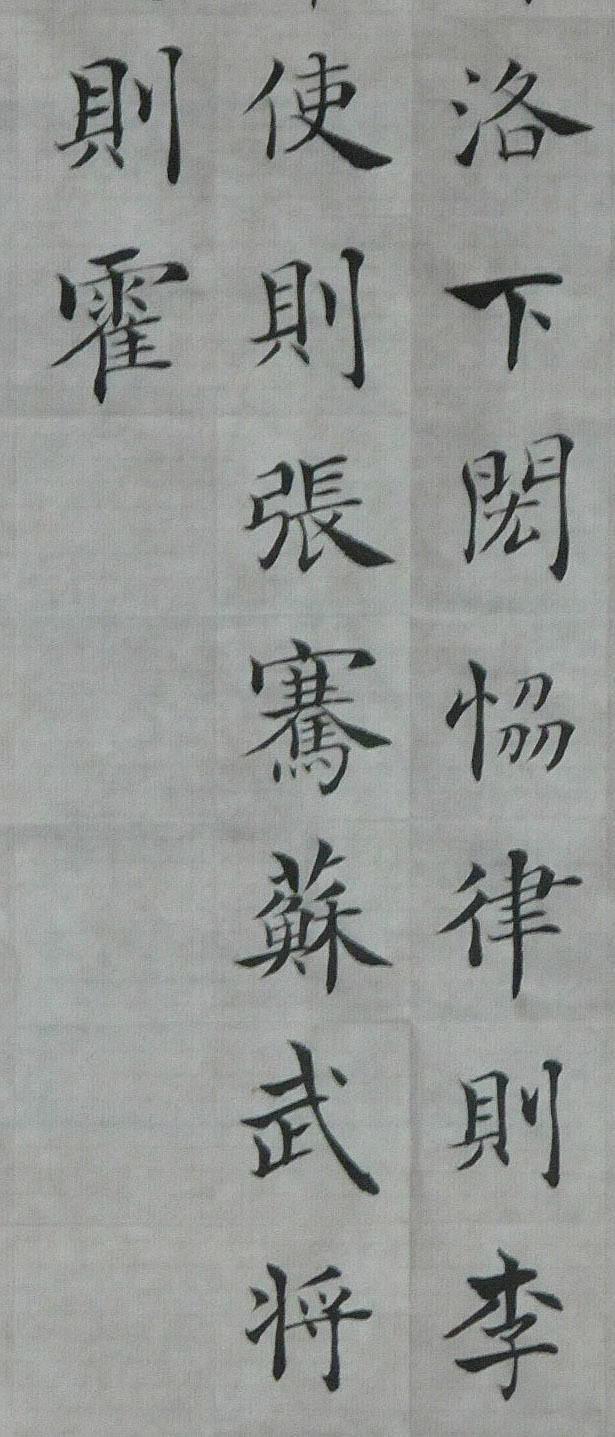 洛下閎恊律則李
使則張騫蘇武将
則霍